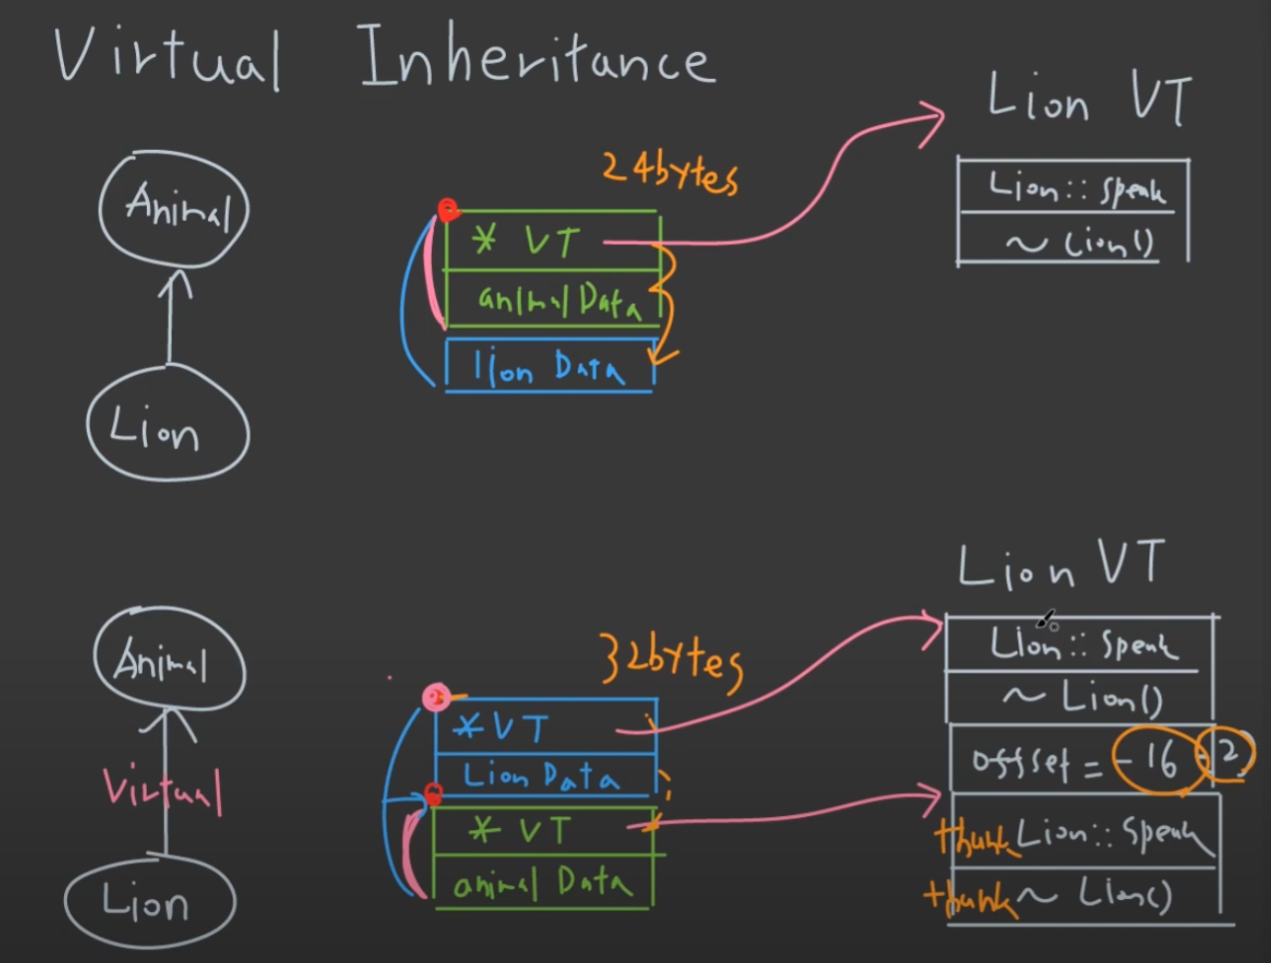 Virtual Inheritance
Animal
Lion
24bytes
* VT
animal Data
lion Data
Lion VT
Lion :: speak
~ Lion()
Animal
Virtual
Lion
32bytes
* VT
Lion Data
* VT
animal Data
Lion VT
Lion :: speak
~ Lion()
offset = -16
2
thunk Lion :: speak
thunk ~ Lion()